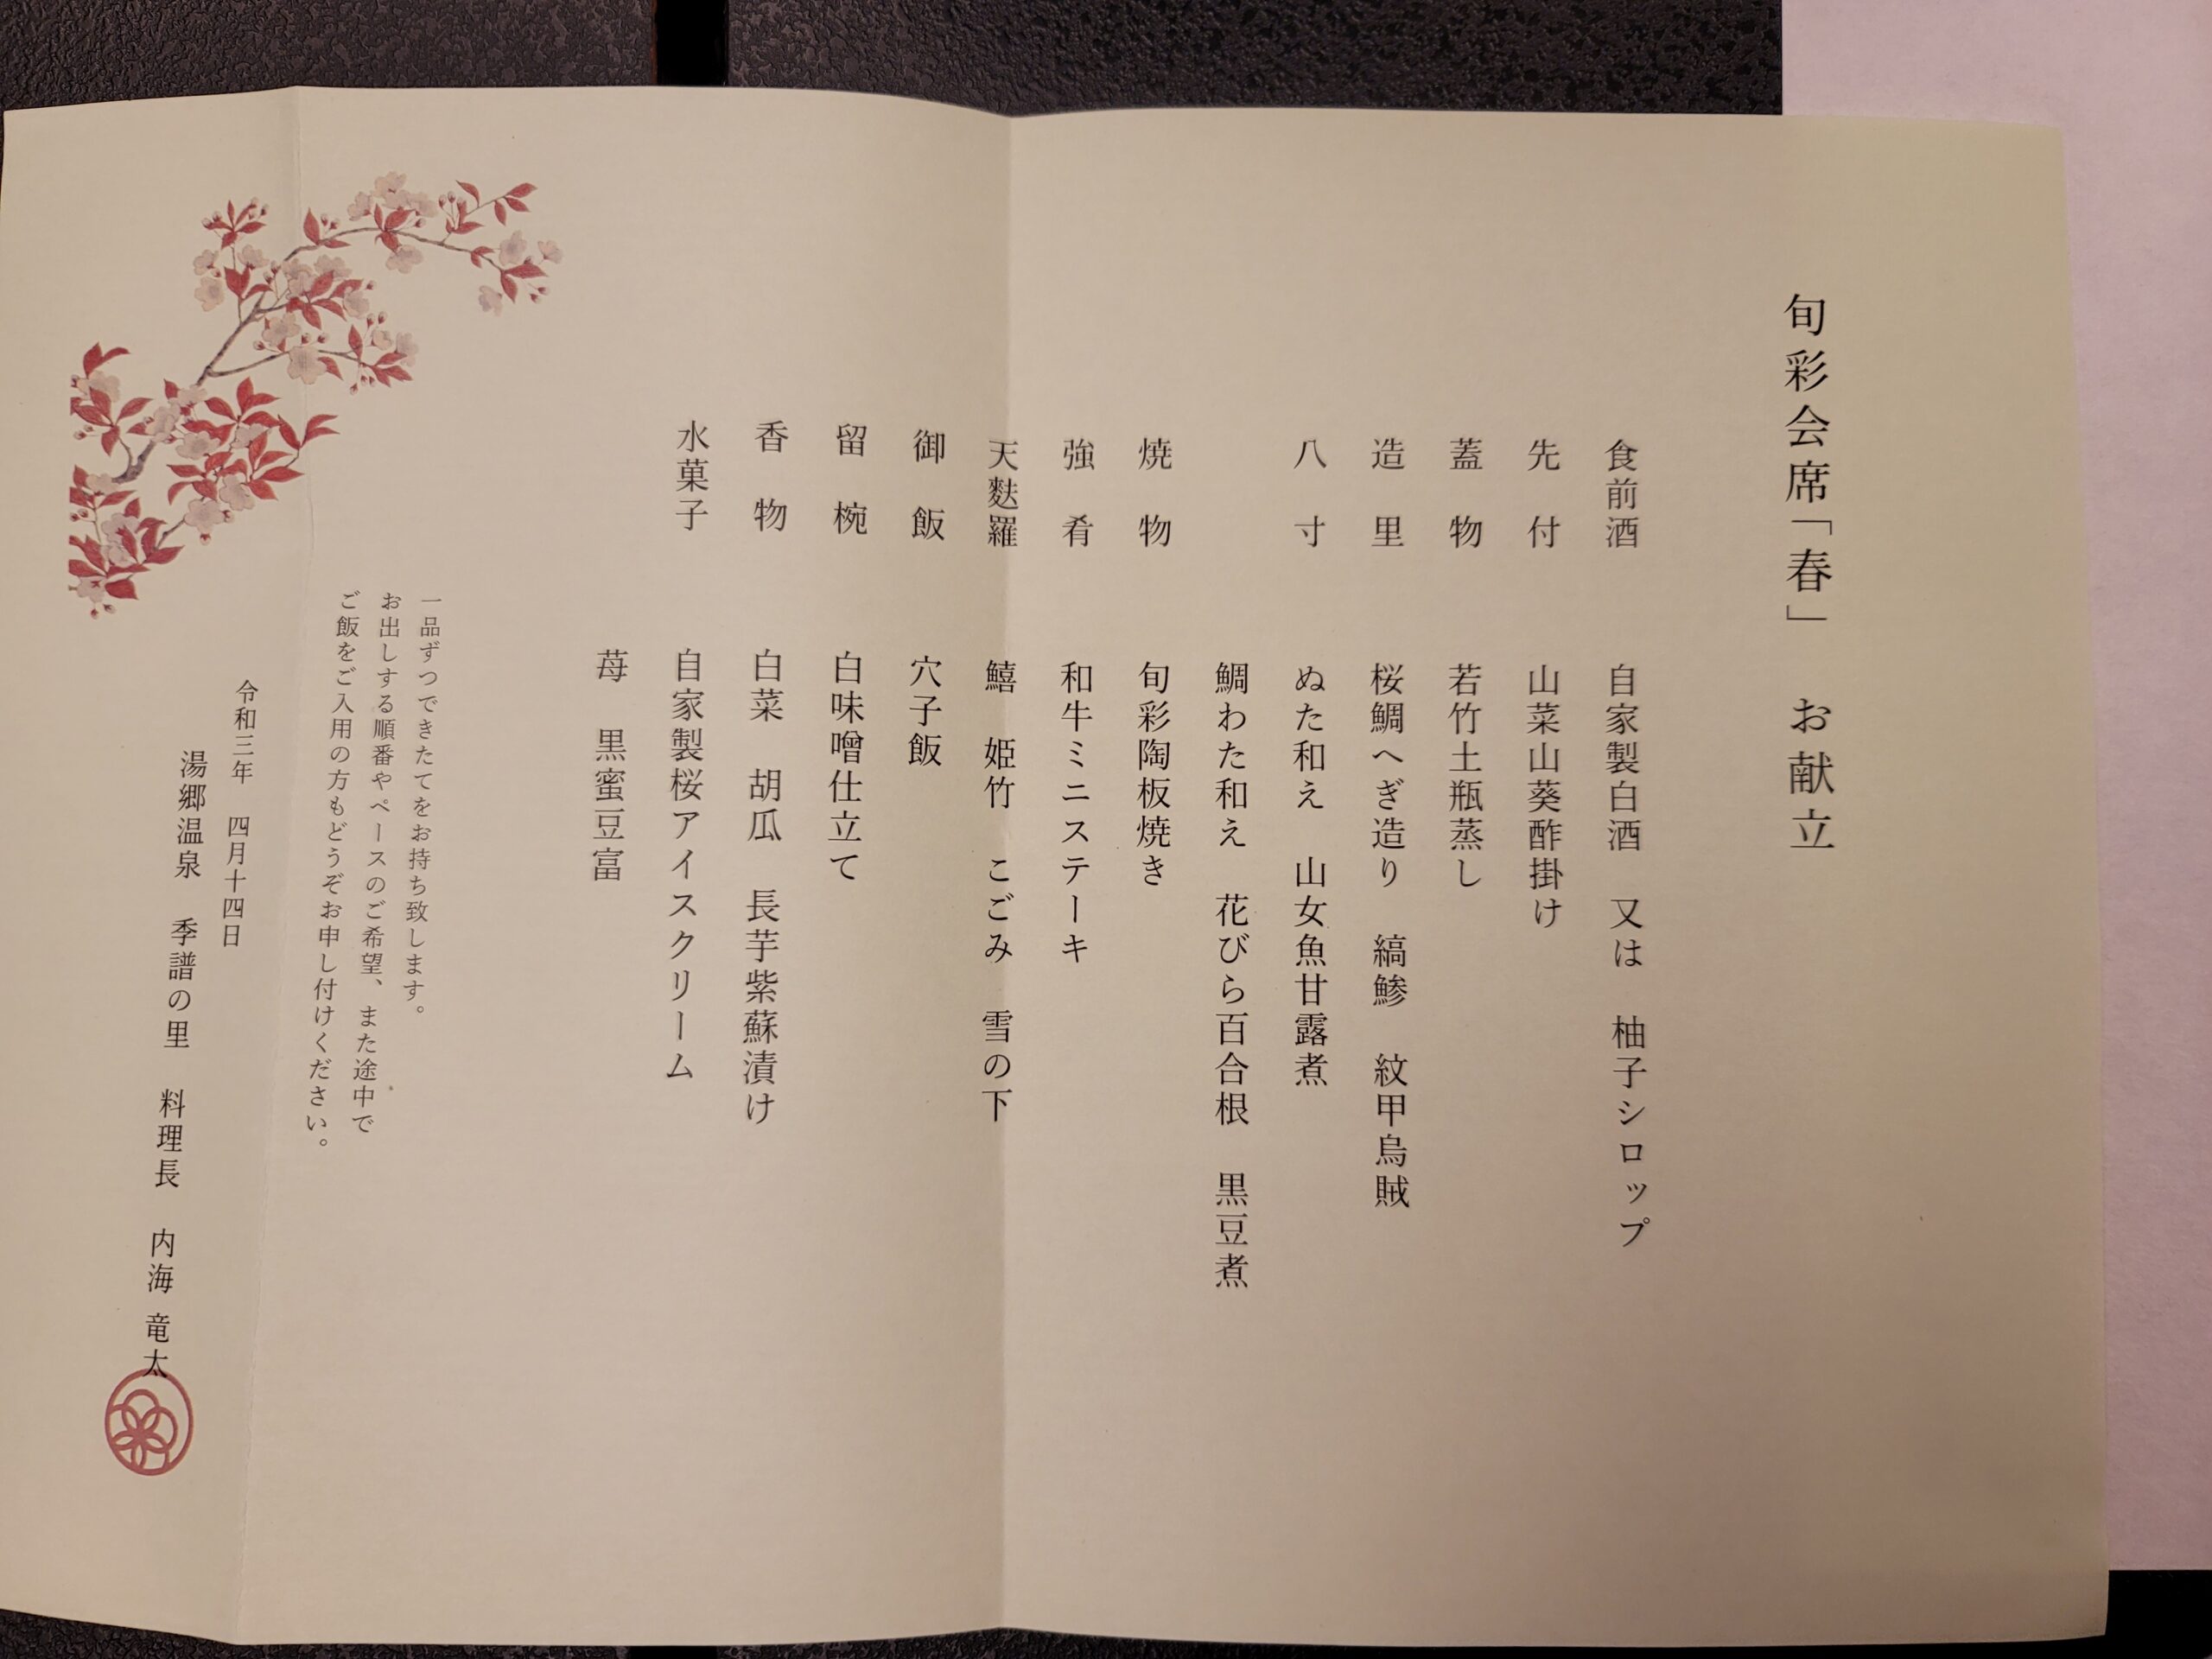 旬彩会席「春」　お献立
食前酒　自家製白酒　又は　柚子シロップ
先付　山菜山葵酢掛け
蓋物　若竹土瓶蒸し
造里　桜鯛へぎ造り　縞鯵　紋甲烏賊
八寸　ぬた和え　山女魚甘露煮
鯛わた和え　花びら百合根　黒豆煮
焼物　旬彩陶板焼き
強肴　和牛ミニステーキ
天麩羅　鱚　姫竹　こごみ　雪の下
御飯　穴子飯
留椀　白味噌仕立て
香物　白菜　胡瓜　長芋紫蘇漬け
水菓子　自家製桜アイスクリーム
苺　黒蜜豆富
一品ずつできたてをお持ち致します。
お出しする順番やペースのご希望、また途中で
ご飯をご入用の方もどうぞお申し付けください。
令和三年　四月十四日
湯郷温泉　季譜の里　料理長　内海　竜太